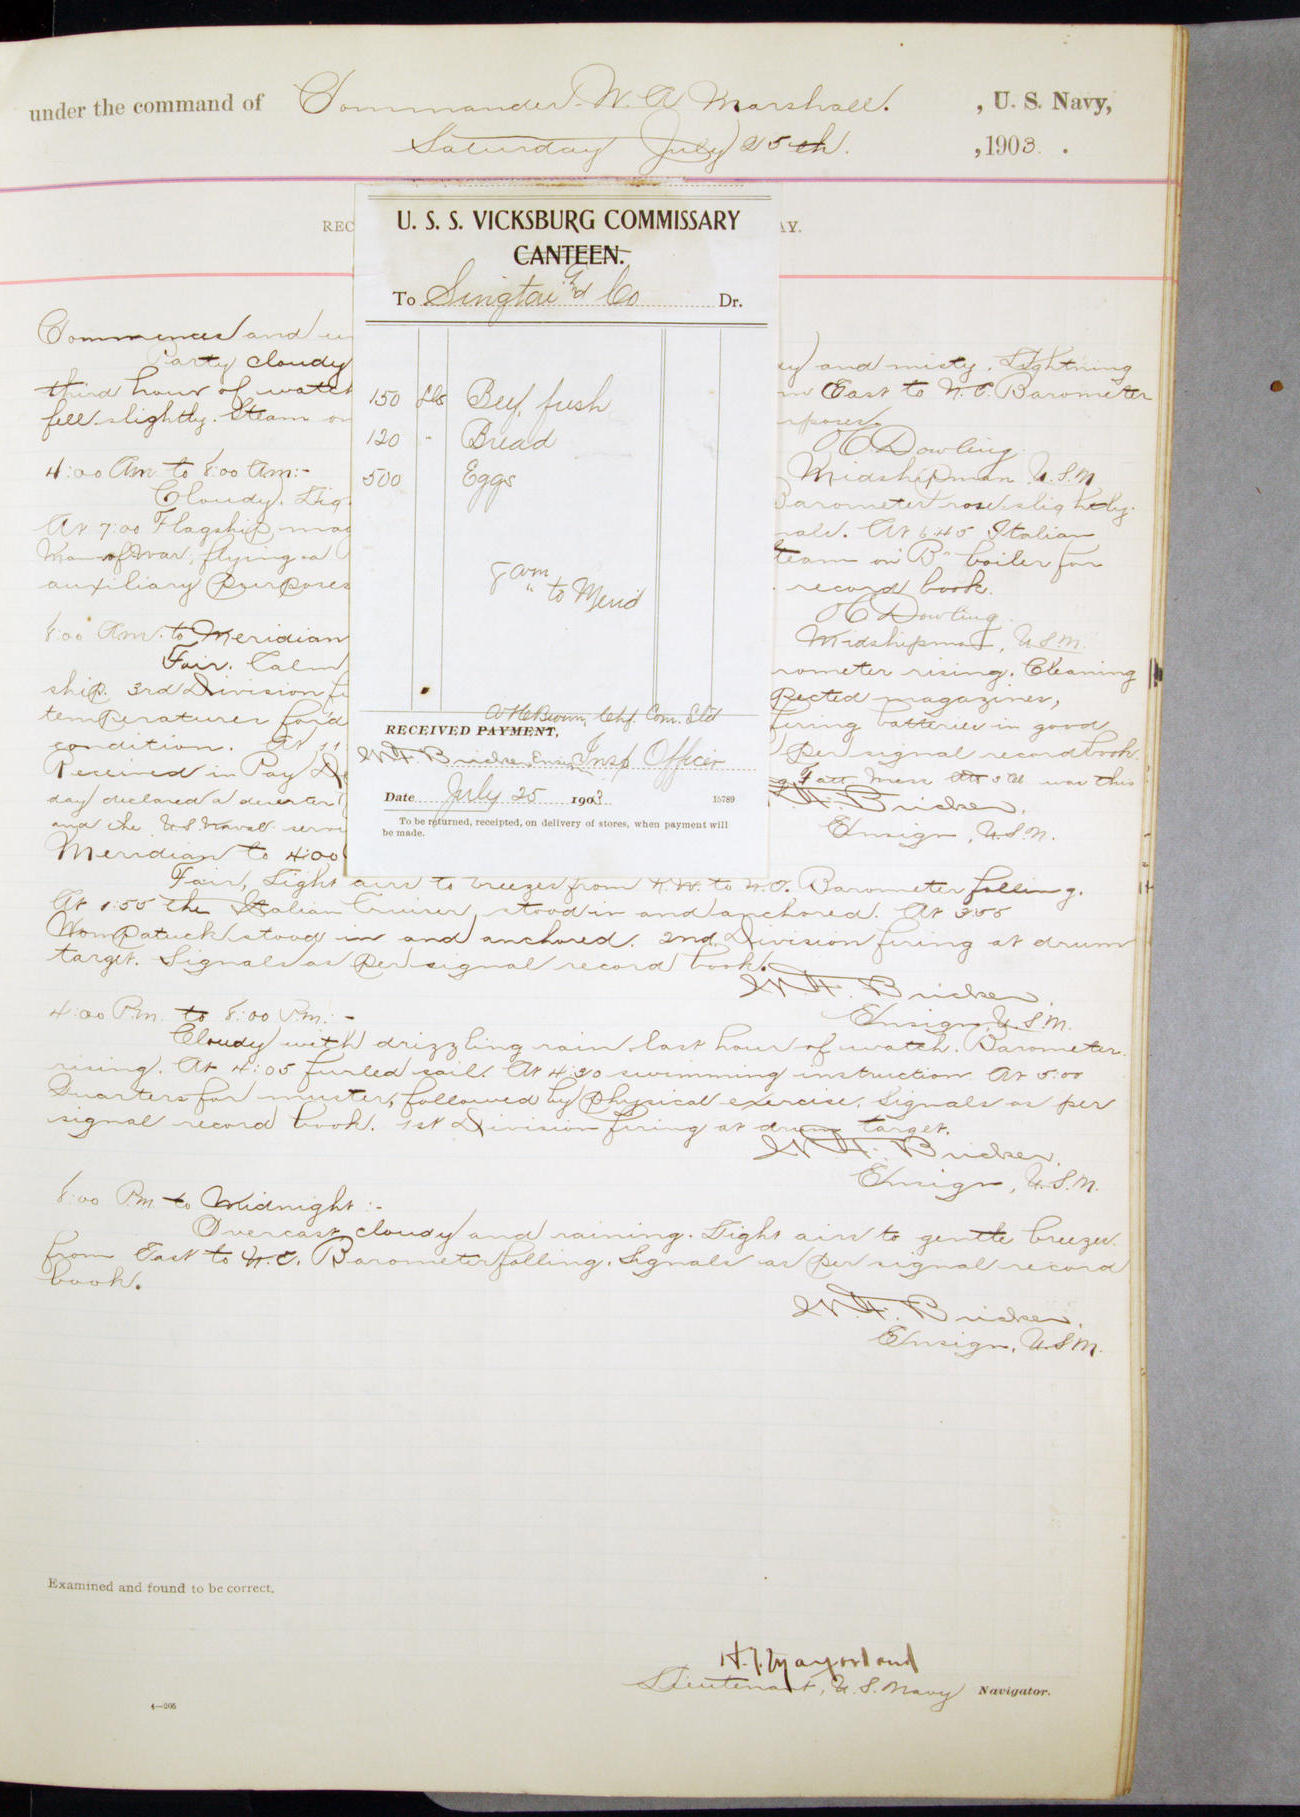 under the command of Commander W. A. Marshall. , U. S. Navy,
Saturday July 25th. , 1903 .
REC
AY.
U. S. S. VICKSBURG COMMISSARY
CANTEEN.
To Singtai & Co Dr.
150 lbs Beef, fresh
120 " Bread
500 Eggs
8 am
" to Merid
Chf. Com. Std
RECEIVED PAYMENT,
W. F. Bricker Ensign Insp Officer
Date July 25 1903.
15789
To be returned, receipted, on delivery of stores, when payment will
be made.
Commences and
Party cloudy
and misty. Lightning
third hour of watch
East to N.E. Barometer
fell slightly. Steam on
O C Dowling
Midshipman U.S.N.
4:00 Am to 8:00 Am:-
Cloudy.
Barometer rose slightly.
At 7:00 Flagship
At 6:45 Italian
Man of War, flying a
team on "B" boiler for
auxiliary purposes
record book.
O C Dowling
Midshipman, U.S.N.
8:00 Am. to Meridian
Fair. Calm
rometer rising. Cleaning
ship. 3rd Division
pected magazines,
temperatures
firing batteries in good
condition. At 11
per signal record book.
Received in Pay
was this
day declared a deserter
and the U.S. Naval
W. F. Bricker.
Ensign, U.S.N.
Meridian to 4:00
Fair, Light airs to breezes from N.W. to N.E. Barometer falling.
At 1:55 the Italian Cruiser stood in and anchored. At 3:55
Wompatuck stood in and anchored. 2nd. Division firing at drum
target. Signals as per signal record book.
W. F. Bricker.
Ensign, U.S.N.
4:00 P.m. to 8:00 P.m.:-
Cloudy with drizzling rain last hour of watch. Barometer
rising. At 4:05 furled sail. At 4:30 swimming instruction. At 5:00
Quarters for muster, followed by physical exercise. Signals as per
signal record book. 1st Division firing at drum target.
W. F. Bricker.
Ensign, U.S.N.
8:00 P.m. to Midnight:-
Overcast cloudy and raining. Light airs to gentle breezes
from East to N.E. Barometer falling. Signals as per signal record
book.
W. F. Bricker.
Ensign, U.S.N.
Examined and found to be correct.
Lieutenant, U.S. Navy Navigator.
4—205